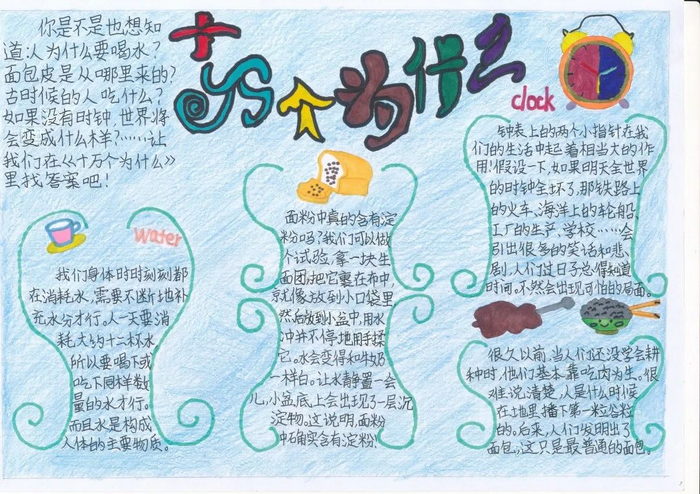 十万个为什么
你是不是也想知
道:人为什么要喝水?
面包皮是从哪里来的?
古时候的人吃什么?
如果没有时钟,世界将
会变成什么样?……让
我们在《十万个为什么》
里找答案吧!
clock
钟表上的两个小指针在我
们的生活中起着相当大的作
用!假设一下,如果明天全世界
的时钟全坏了,那铁路上
的火车、海洋上的轮船、
工厂的生产、学校……会
引出很多的笑话和悲
剧,人们过日子总得知道
时间,不然会出现可怕的局面。
面粉中真的含有淀
粉吗?我们可以做
个试验,拿一块生
面团,把它裹在布中,
就像放到小口袋里
然后放到小盆中,用水
冲并不停地用手揉
它。水会变得和牛奶
一样白。让水静置一会
儿,小盆底上会出现了一层沉
淀物。这说明,面粉
中确实含有淀粉!
water
我们身体时时刻刻都
在消耗水,需要不断地补
充水分才行。人一天要消
耗大约十二杯水,
所以要喝下或
吃下同样数
量的水才行。
而且水是构成
人体的主要物质。
很久以前,当人们还没学会耕
种时,他们基本靠吃肉为生。很
难说清楚,人是什么时候
在地里播下第一粒谷粒
的。后来,人们发明出了
面包,这只是最普通的面包。